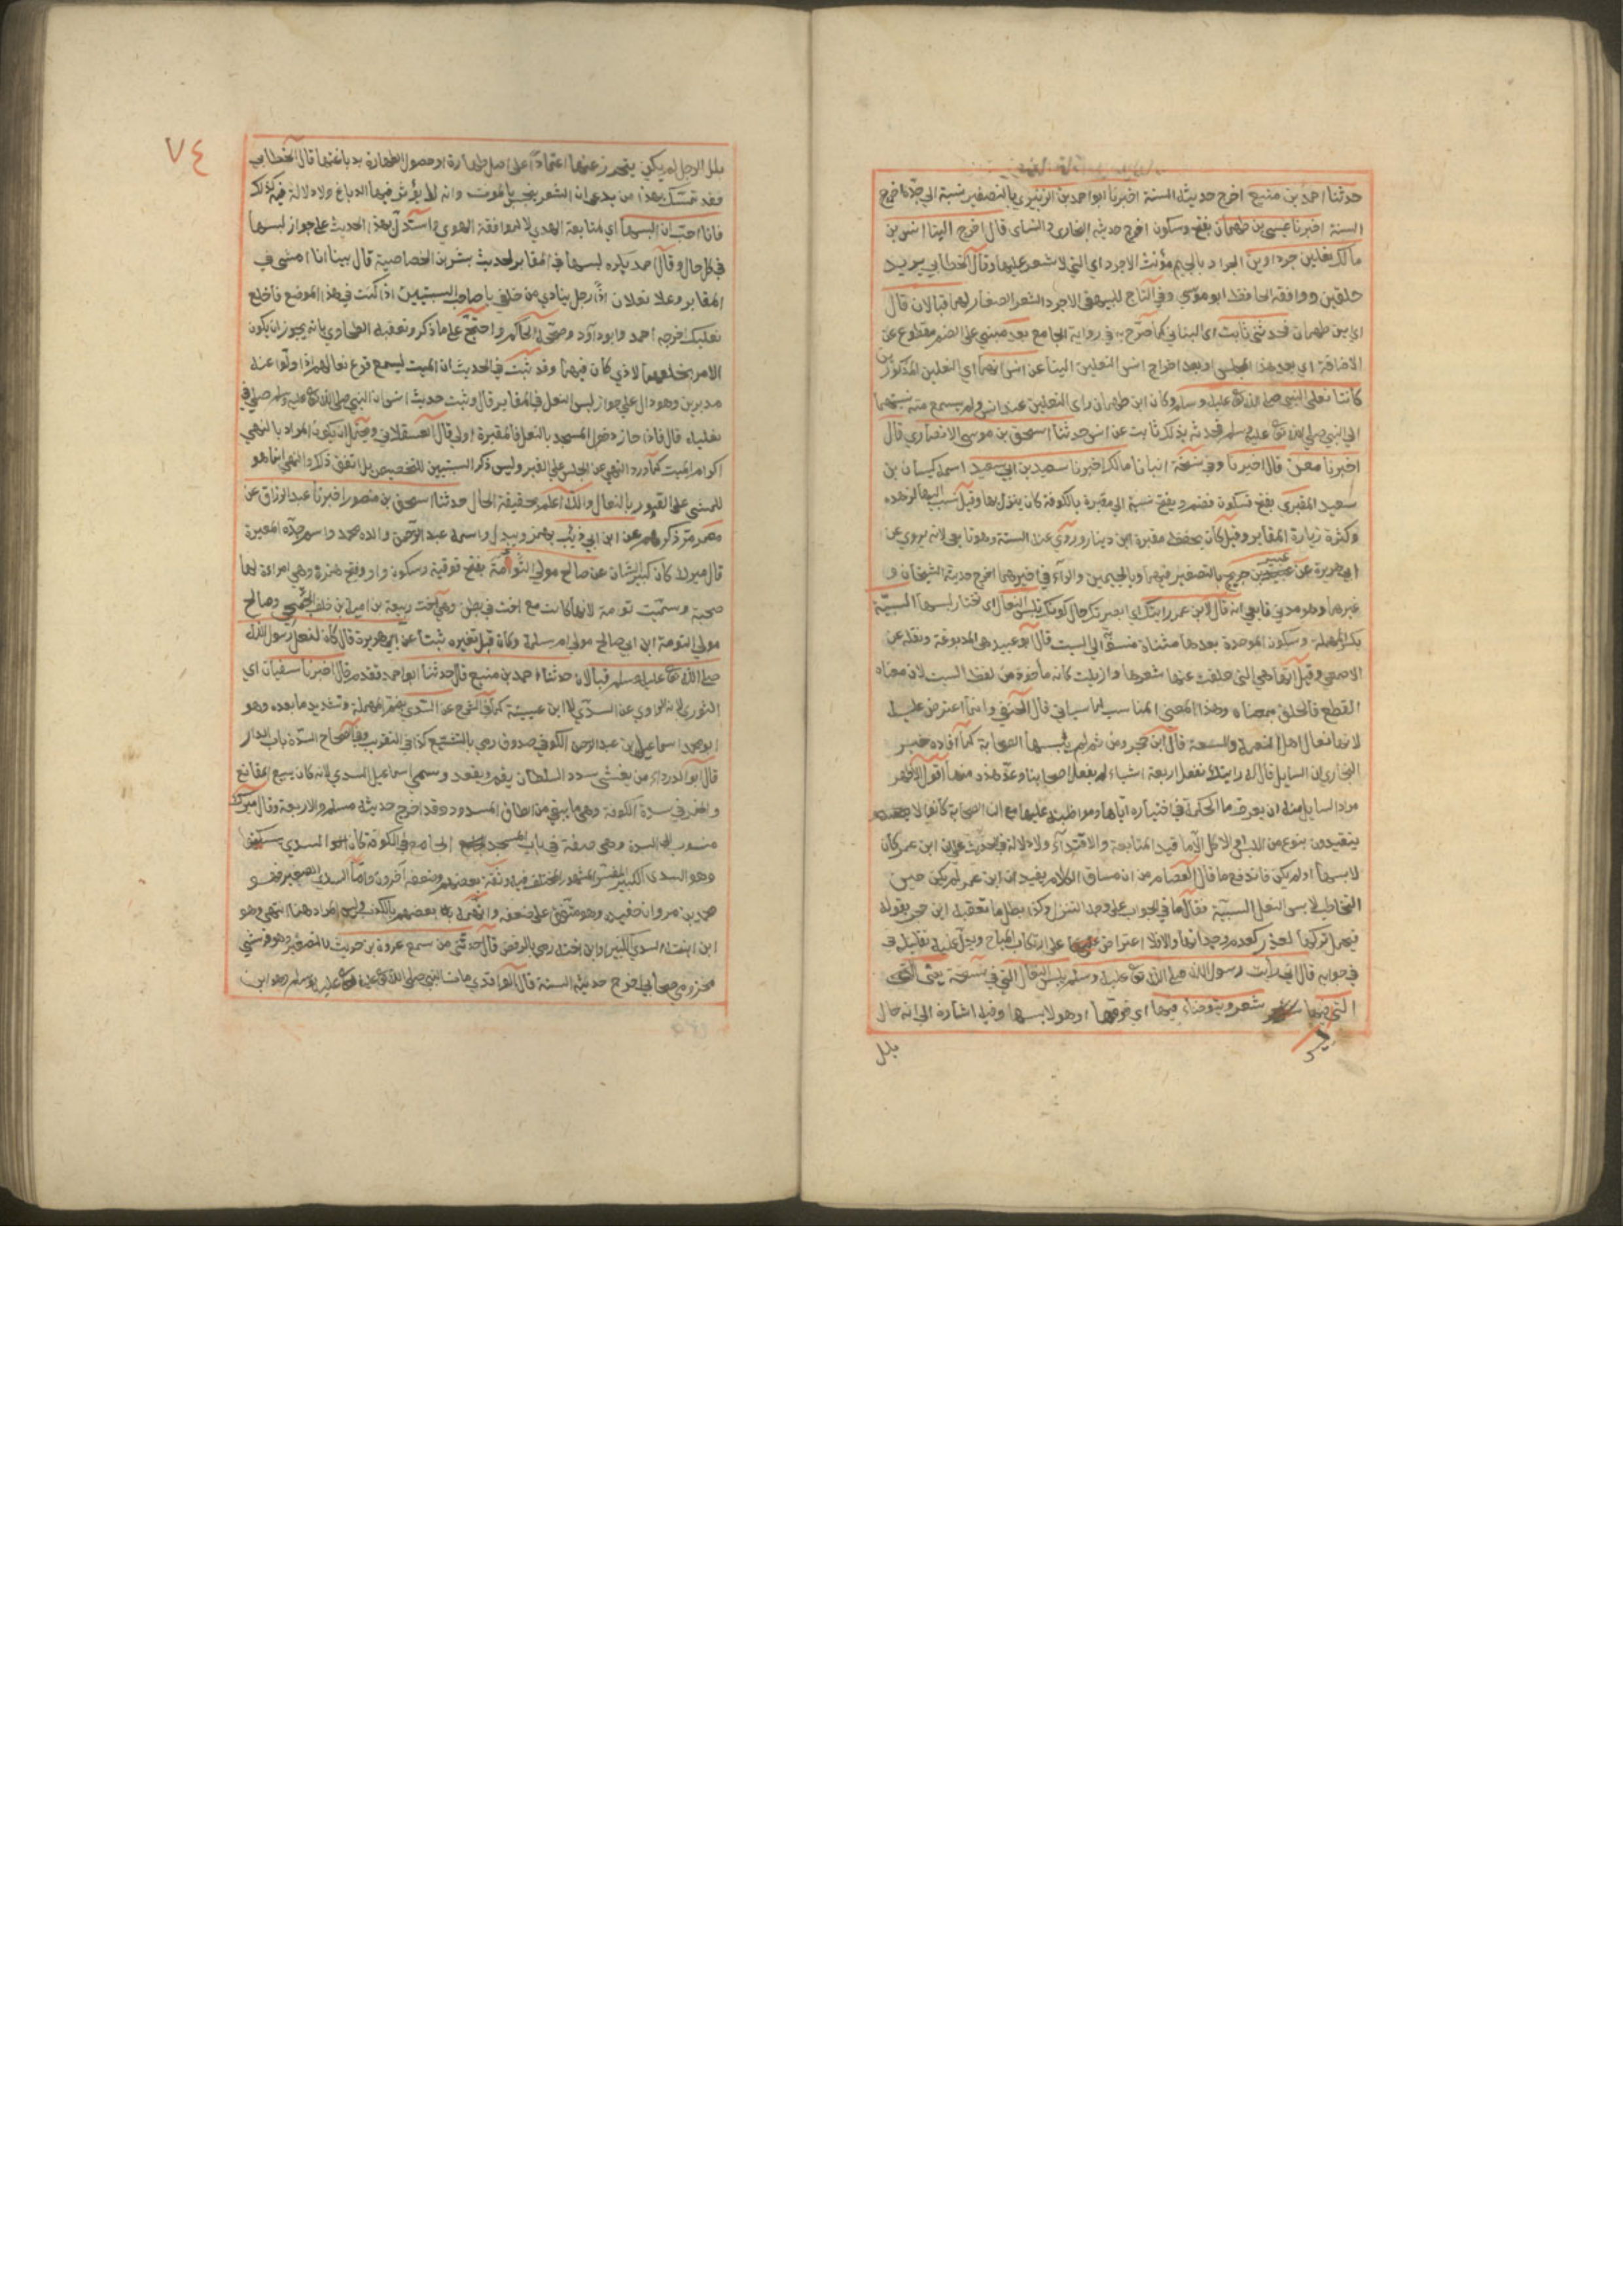 حدثنا احمد بن منيع اخرج حديثه الستة اخبرنا ابو احمد بن الزبيري بالتصغير نسبة الي جده اخرج
الستة اخبرنا عيسى بن طهمان بفتح وسكون اخرج حديثه البخاري والنسائي قال اخرج الينا انس بن
مالك نعلين جرداوين الجرداء بالجيم مؤنث الاجرد اي التي لا شعر عليها وقال الخطابي يريد
خلقين ووافقه الحافظ ابو موسى وفي التاج للبيهقي الاجرد الشعر الصغار لهما قبالان قال
اي بن طهمان فحدثني ثابت اي البناني كما صرح به في رواية الجامع بعد مبني على الضم مقطوع عن
الاضافة اي بعد هذا المجلس او بعد اخراج انس النعلين الينا عن انس انهما اي النعلين المذكورين
كانتا نعلي النبي صلى الله تعالى عليه وسلم وكان ابن طهمان راى النعلين عند انس ولم يسمع منه نسبتهما
الي النبي صلي الله تعالى عليه وسلم فحدثه بذلك ثابت عن انس حدثنا اسحق بن موسى الانصاري قال
اخبرنا معن قال اخبرنا وفي نسخة انبانا مالك اخبرنا سعيد بن ابي سعيد اسمه كيسان بن
سعيد المقبري بفتح فسكون فضم ويفتح نسبة الي مقبرة بالكوفة كان ينزل بها وقيل نسب اليها لزهده
وكثرة زيارة المقابر وقيل كان يحفظ مقبرة ابن دينار وروي عنه الستة وهو تابعي لانه يروي عن
ابي هريرة عن عبيد بن جريج بالتصغير فيهما وبالجيمين والراء في اخيرهما اخرج حديثه الشيخان و
غيرهما وهو مدني تابعي انه قال لابن عمر رايتك اي ابصرتك حال كونك تلبس النعال اي تختار لبسها السبتية
بكسر المهملة وسكون الموحدة بعدها مثناة منسوبة الي السبت قال ابو عبيد هي المدبوغة ونقله عن
الاصمعي وقيل انها هي التي حلقت عنها شعرها وازيلت كانه ماخوذ من لفظ السبت لان معناه
القطع فالحلق بمعناه وهذا المعنى المناسب لما سياتي قال الحنفي وانما اعترض عليه
لانها نعال اهل النعمة والسعة قال ابن حجر ومن ثم لم يلبسها الصحابة كما افاده خبر
البخاري ان السايل قال له رايتك تفعل اربعة اشياء لم يفعلها اصحابنا وعد هذه منها اقول الاظهر
مراد السايل منه ان يعرف ما الحكمة في اختياره اياها ومواظبته عليها مع ان الصحابة كانوا لا
يتقيدون بنوع من اللباس والاكل الا ما فيه المتابعة والاقتداء ولا دلالة في الحديث على ان ابن عمر كان
لابسها او لم يكن فاندفع ما قال العصام من ان مساق الكلام يفيد ان ابن عمر لم يكن حين
التخاطب لابس النعل السبتية
في جوابه قال اني رأيت رسول الله صلى الله تعالى عليه وسلم يلبس النعال التي في نسخة يعني التي
ليس فيها شعر ويتوضاء فيها اي فوقها او هو لابسها وفيه اشارة الي انه حال
بلل
٧٤
بلل الرجل لم يكن يتحرز عنها اعتمادا على اصل طهارة او حصول الطهارة بدباغتها قال الخطابي
فقد تمسك بهذا من يدعي ان الشعر ينجس بالموت وانه لا يؤثر فيها الدباغ ولا دلالة فيه لذلك
فانا احب ان البسها اي لمتابعة الهدي لا لموافقة الهوى واستدل بهذا الحديث على جواز لبسها
في كل حال وقال احمد يكره لبسها في المقابر لحديث بشر بن الخصاصية قال بينا انا امشي في
المقابر وعلي نعلان اذا رجل ينادي من خلفي يا صاحب السبتيتين اذا كنت في هذا الموضع فاخلع
نعليك اخرجه احمد وابو داود وصححه الحاكم واحتج على ما ذكر وتعقبه الطحاوي بانه يجوز ان يكون
الامر بخلعهما لاذى كان فيهما وقد ثبت في الحديث ان الميت ليسمع قرع نعالهم اذا ولوا عنه
مدبرين وهو دال على جواز لبس النعل في المقابر قال وثبت حديث انس ان النبي صلى الله تعالى عليه وسلم صلى في
نعليه قال فاذا جاز دخول المسجد بالنعل فالمقبرة اولى قال العسقلاني ويحتمل ان يكون المراد بالنهي
اكرام الميت كما ورد النهي عن الجلوس على القبر وليس ذكر السبتيتين للتخصيص بل اتفق ذلك والنهي انما هو
للمشي على القبور بالنعال والله اعلم بحقيقة الحال حدثنا اسحق بن منصور اخبرنا عبد الرزاق عن
معمر مر ذكرهم عن ابن ابي ذئب بهمز ويبدل واسمه عبد الرحمن والده محمد واسم جده المغيرة
قال ميرك كان كبير الشان عن صالح مولي التوأمة بفتح فوقية وسكون واو وفتح همزة وهي امراءة لها
صحبة وسميت توءمة لانها كانت مع اخت في بطن وهي اخت ربيعة بن امية بن خلف الجمحي وصالح
مولي التومة ابن ابي صالح مولي ام سلمة وكان قبل تغيره ثبتا عن ابي هريرة قال كان لنعل رسول الله
صلى الله تعالى عليه وسلم قبالان حدثنا احمد بن منيع قال حدثنا ابو احمد تقدم قال اخبرنا سفيان اي
الثوري لانه الراوي عن السدي لا ابن عيينة كما في الشرح عن السدي بضم المهملة وتشديد ما بعده وهو
ابو محمد اسماعيل بن عبد الرحمن الكوفي صدوق رمي بالتشيع كذا في التقريب وفي الصحاح السدة باب الدار
قال ابو الدرداء من يغشى سدد السلطان يقم ويقعد وسمي اسماعيل السدي لانه كان يبيع المقانع
والخمر في سدة الكوفة وهي ما يبقى من الطاق المسدود وقد اخرج حديثه مسلم والاربعة وقال ميرك
منسوب الي السدة وهي صفة في باب المسجد الجامع في الكوفة كان السدي يسكنها
وهو السدي الكبير المفسر المشهور المختلف فيه وثقه بعضهم وضعفه آخرون واما السدي الصغير فهو
محمد بن مروان حفيده وهو متفق على ضعفه واتهمه بعضهم بالكذب وليس المراد هنا انتهى وهو
ابن ابنت السدي الكبير او ابن اخته رمي بالرفض قال حدثني من سمع عروة بن حريث بالتصغير وهو قرشي
مخزومي صحابي اخرج حديثه الستة قال الواقدي مات النبي صلى الله تعالى عليه وسلم وهو ابن